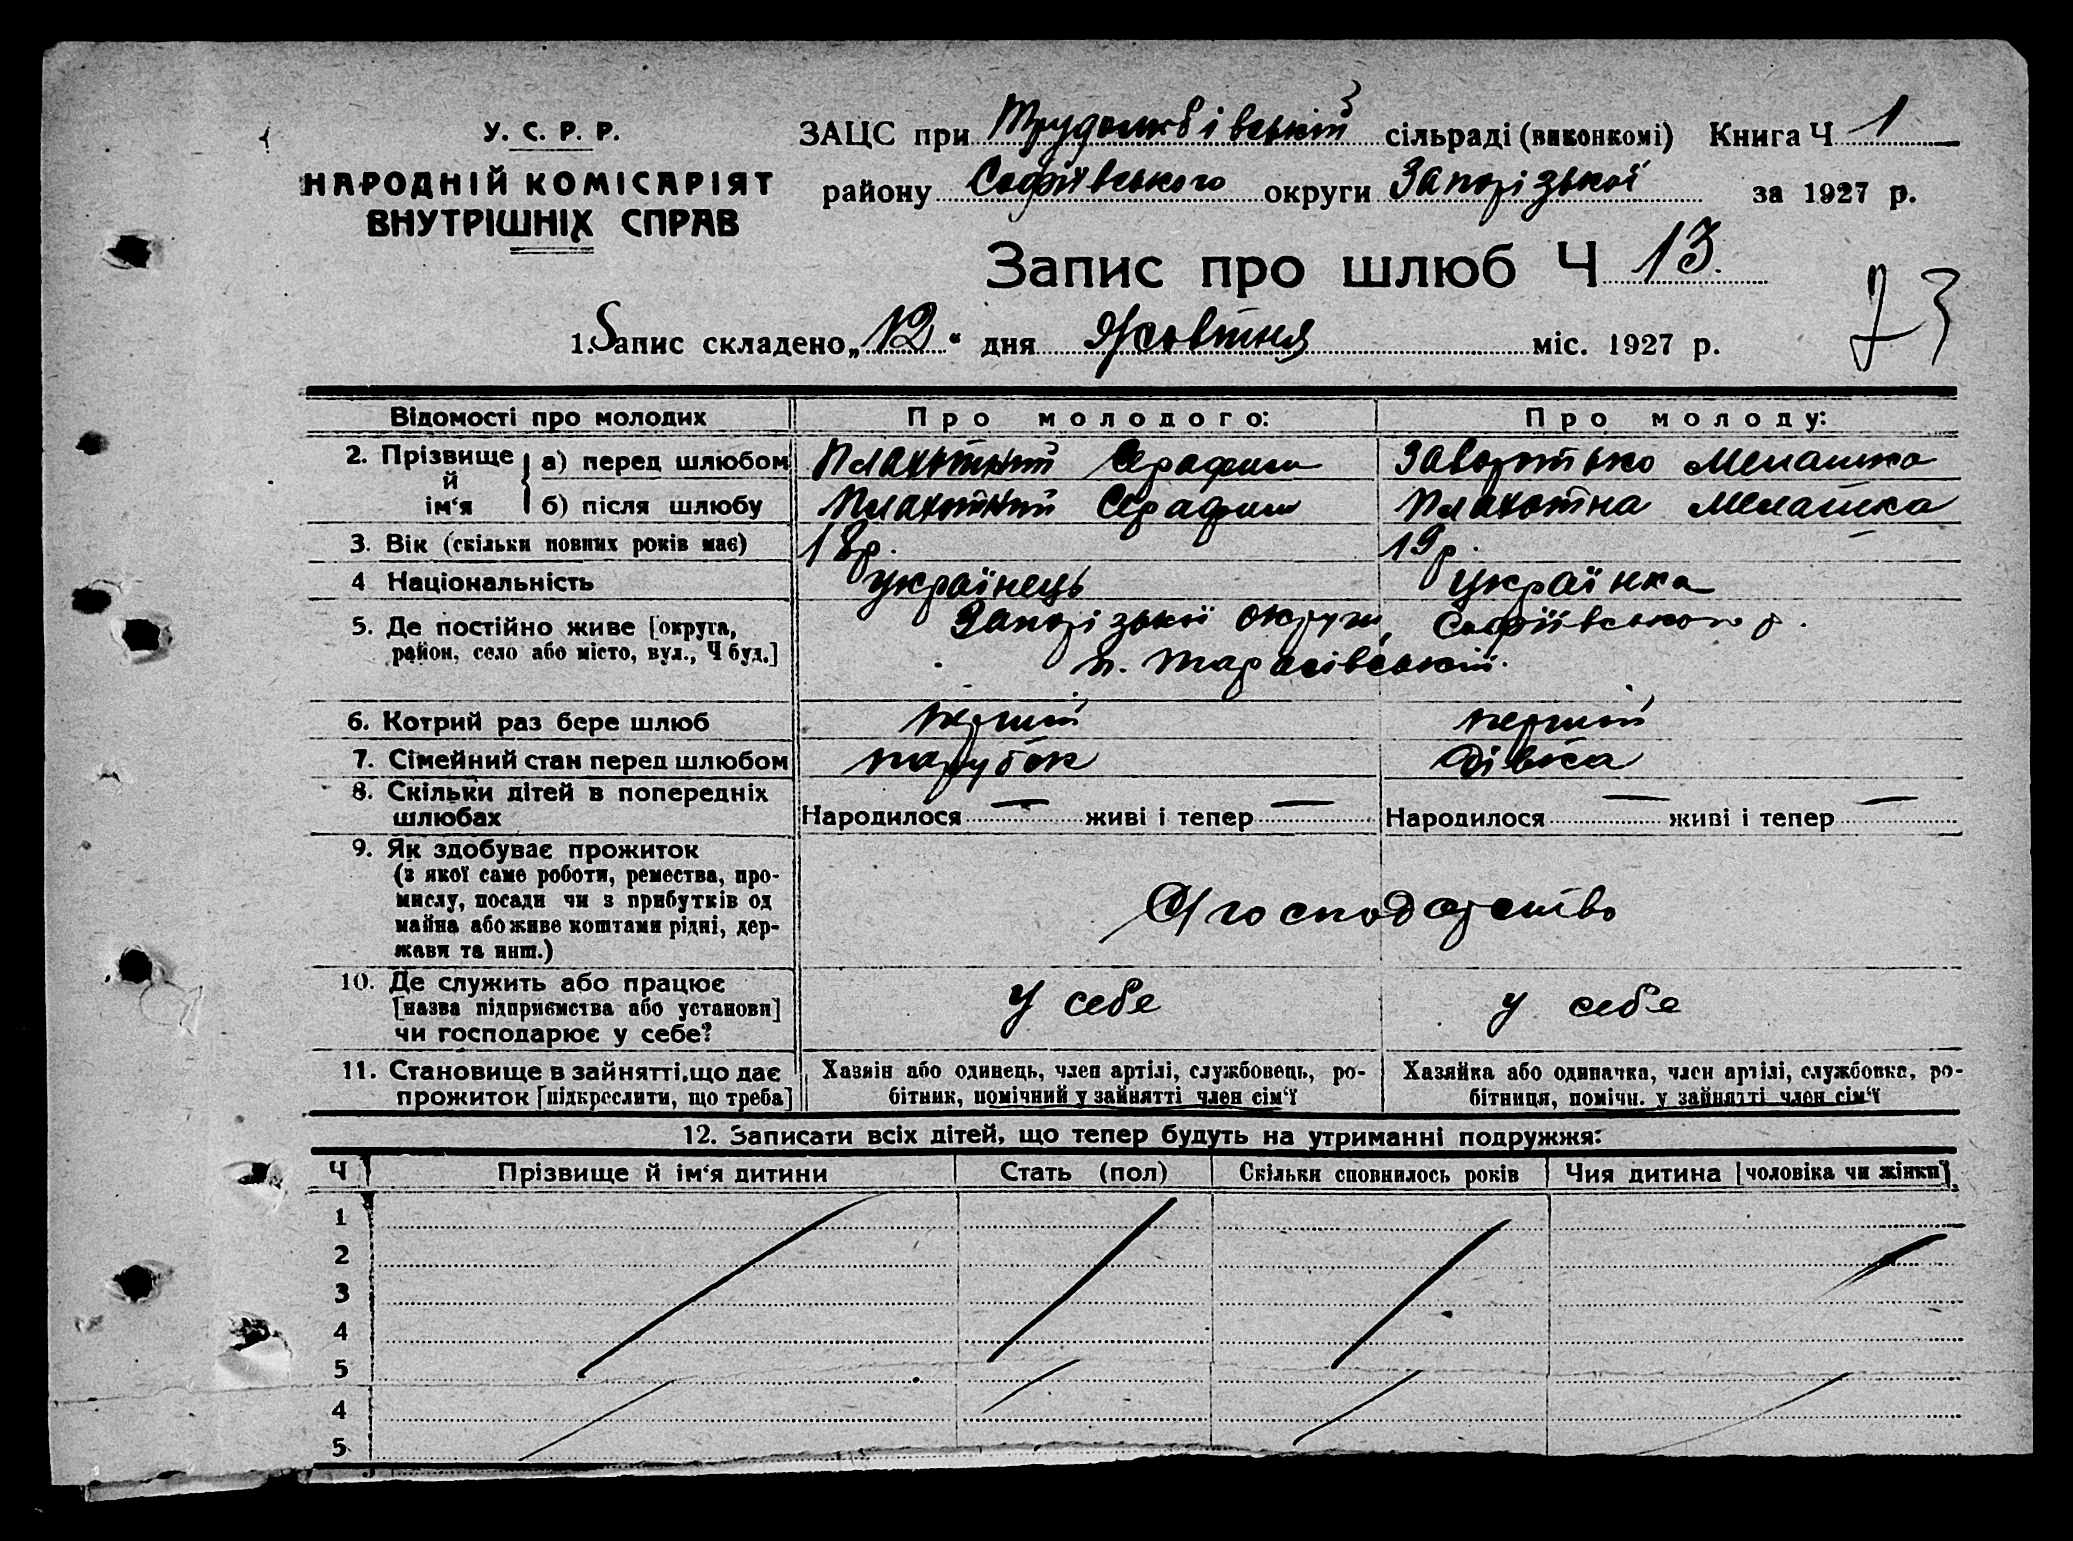 У. С. Р. Р.
НАРОДНІЙ КОМІСАРІЯТ
ВНУТРІШНІХ СПРАВ
ЗАЦС при Трудолюбівській сільраді (виконкомі) Книга Ч 1
району Софіївського округи Запорізької за 1927 р.
Запис про шлюб Ч 13.
73
1. Запис складено „12“ дня Жовтня міс. 1927 р.
Відомості про молодих Про молодого: Про молоду:
2. Прізвище й ім‘я а) перед шлюбом Плахотний Серафим Заворотько Мелашка
б) після шлюбу Плахотний Серафим Плахотна Мелашка
3. Вік (скільки повних років має) 18р. 19р.
4 Національність Українець Українка
5. Де постійно живе [округа, Запорізької округи, Софіївського р.
район, село або місто, вул., Ч буд.] п. Тарасівській.
6. Котрий раз бере шлюб перший перший
7. Сімейний стан перед шлюбом парубок дівка
8. Скільки дітей в попередніх
шлюбах Народилося — живі і тепер — Народилося — живі і тепер —
9. Як здобуває прожиток
(з якої саме роботи, ремества, про-
мислу, посади чи з прибутків од
майна або живе коштами рідні, дер-
жави та инш.)
господарство
10. Де служить або працює
[назва підприємства або установи]
чи господарює у себе?
у себе у себе
11. Становище в зайнятті, що дає Хазяїн або одинець, член артілі, службовець, ро- Хазяйка або одиначка, член артілі, службовка, ро-
прожиток [підкреслити, що треба] бітник, помічний у зайнятті член сім‘ї бітниця, помічн. у зайнятті член сім‘ї
12. Записати всіх дітей, що тепер будуть на утриманні подружжя:
Ч Прізвище й ім‘я дитини Стать (пол) Скільки сповнилось років Чия дитина [чоловіка чи жінки]
1
2
3
4
5
4
5